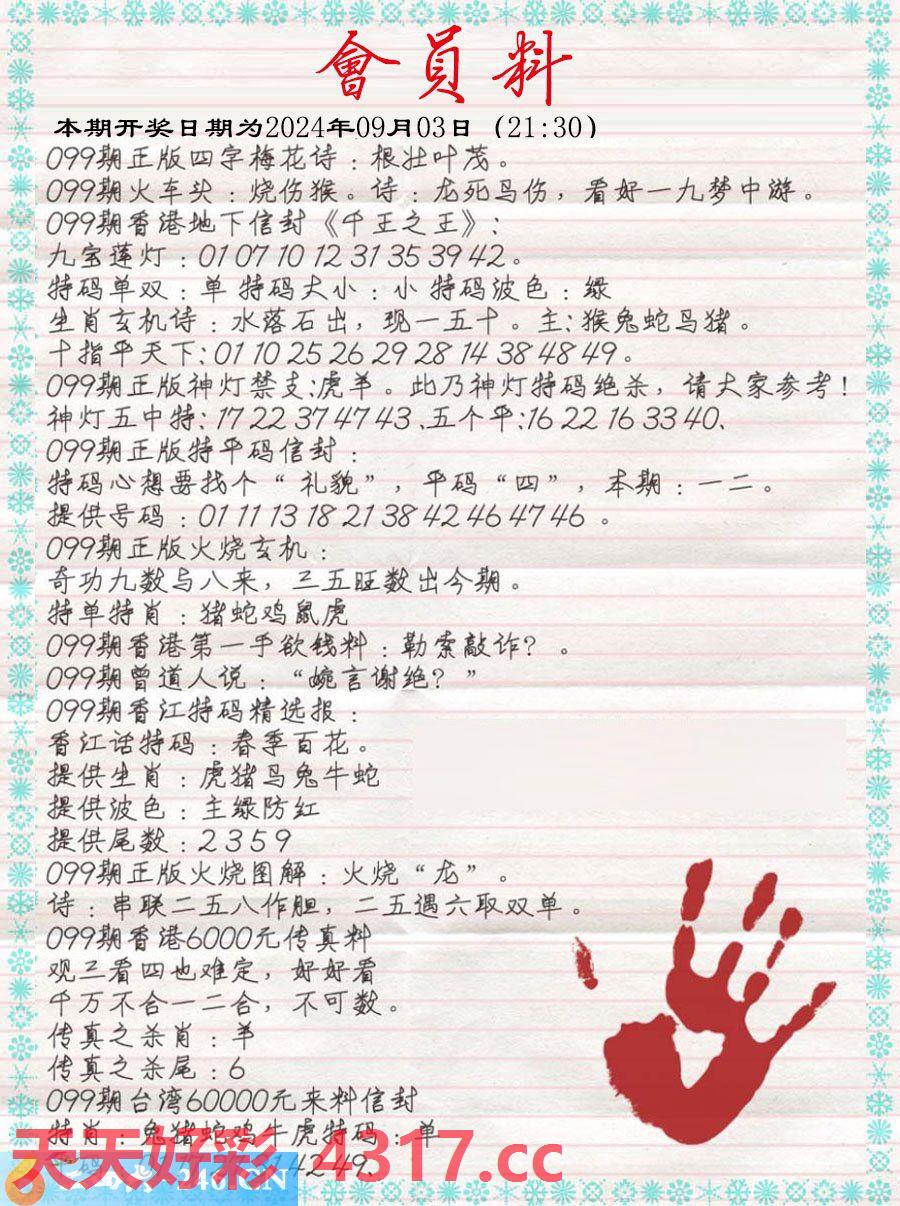 會員料
本期开奖日期为2024年09月03日（21:30）
099期正版四字梅花诗：根壮叶茂。
099期火车头：烧伤猴。诗：龙死鸟伤，看好一九梦中游。
099期香港地下信封《千王之王》：
九宝莲灯：01 07 10 12 31 35 39 42。
特码单双：单 特码大小：小 特码波色：绿
生肖玄机诗：水落石出，现一五十。主：猴兔蛇鸟猪。
十指平天下：01 10 25 26 29 28 14 38 48 49。
099期正版神灯禁支：虎羊。此乃神灯特码绝杀，请大家参考！
神灯五中特：17 22 37 47 43、五个平：16 22 16 33 40、
099期正版特平码信封：
特码心想要找个“礼貌”，平码“四”，本期：一二。
提供号码：01 11 13 18 21 38 42 46 47 46 。
099期正版火烧玄机：
奇功九数与八来，三五旺数出今期。
特单特肖：猪蛇鸡鼠虎
099期香港第一手欲钱料：勒索敲诈？。
099期曾道人说：“婉言谢绝？”
099期香江特码精选报：
香江话特码：春季百花。
提供生肖：虎猪鸟兔牛蛇
提供波色：主绿防红
提供尾数：2 3 5 9
099期正版火烧图解：火烧“龙”。
诗：串联二五八作胆，二五遇六取双单。
099期香港6000元传真料
观三看四也难定，好好看
千万不合一二合，不可数。
传真之杀肖：羊
传真之杀尾：6
099期台湾60000元来料信封
特肖：兔猪蛇鸡牛虎特码：单
天天好彩 4317.cc
42 49、
246.CN